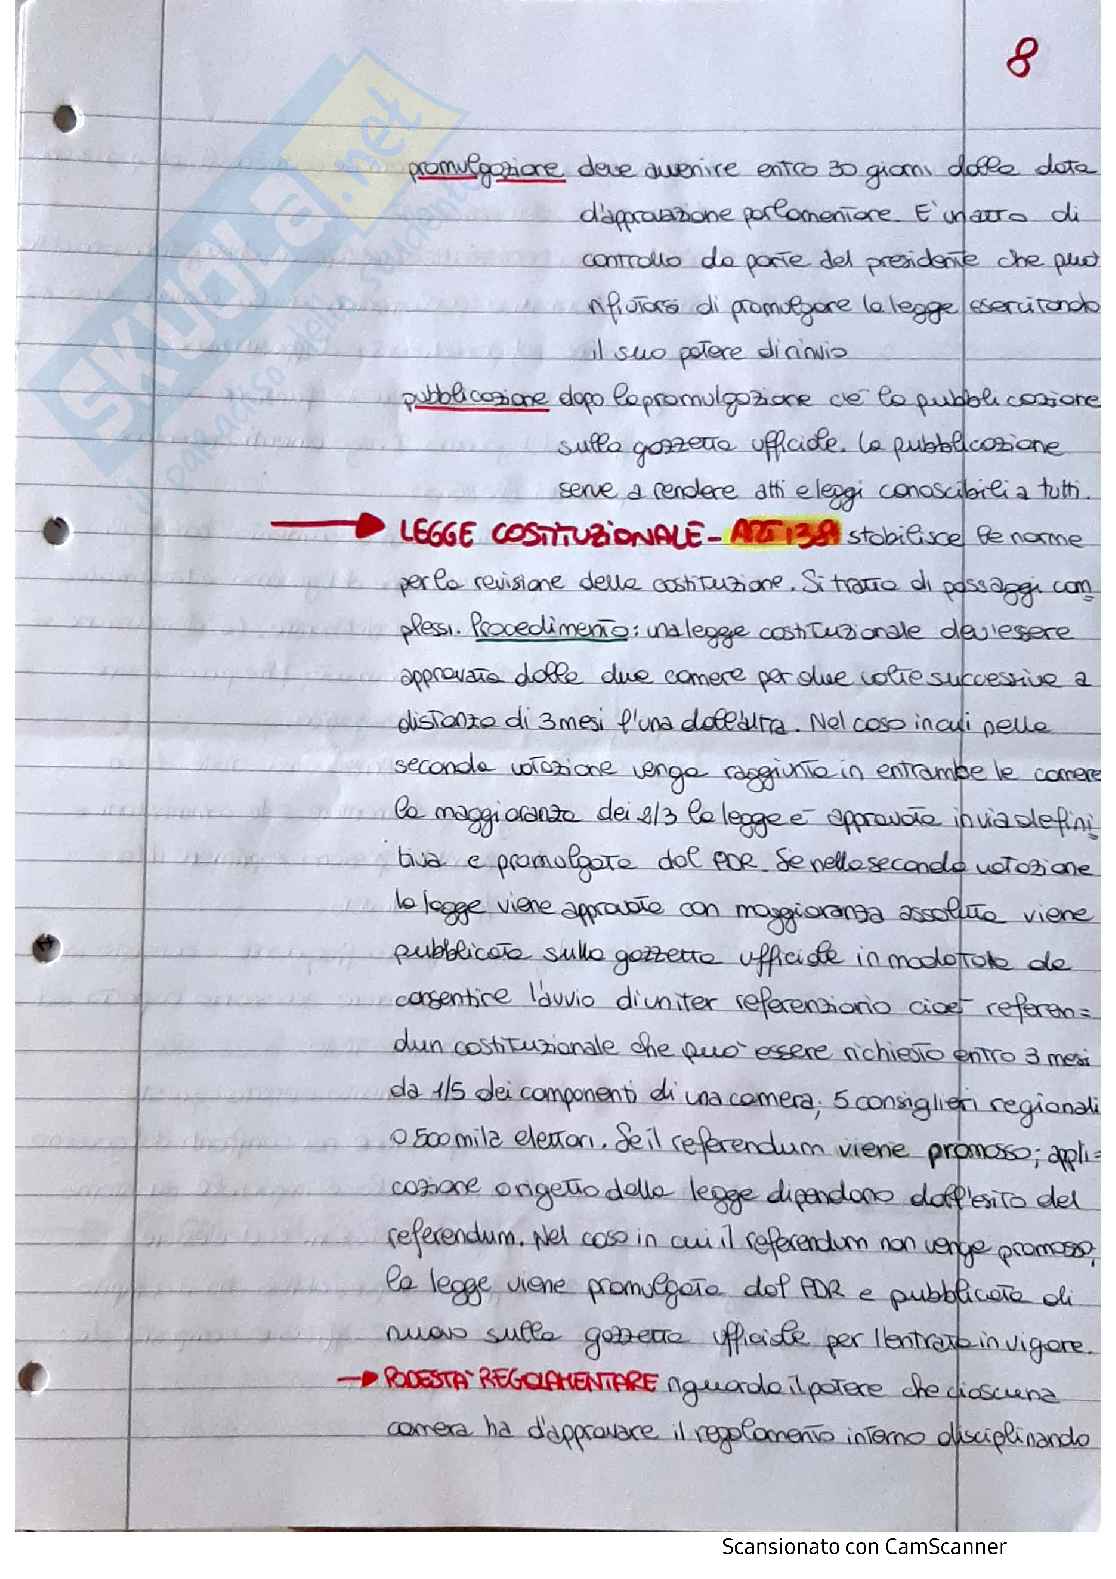 8
promulgazione deve avvenire entro 30 giorni dalla data
d'approvazione parlamentare. E' un atto di
controllo da parte del presidente che può
rifiutarsi di promulgare la legge esercitando
il suo potere di rinvio
pubblicazione dopo la promulgazione c'è la pubblicazione
sulla gazzetta ufficiale. La pubblicazione
serve a rendere atti e leggi conoscibili a tutti.
LEGGE COSTITUZIONALE - ART 138 stabilisce le norme
per la revisione della costituzione. Si tratta di passaggi com=
plessi. Procedimento: una legge costituzionale dev'essere
approvata dalle due camere per due volte successive a
distanza di 3 mesi l'una dall'altra. Nel caso in cui nella
seconda votazione venga raggiunta in entrambe le camere
la maggioranza dei 2/3 la legge è approvata in via defini=
tiva e promulgata dal PDR. Se nella seconda votazione
la legge viene approvata con maggioranza assoluta viene
pubblicata sulla gazzetta ufficiale in modo tale da
consentire l'avvio di un iter referenziario cioè referen=
dun costituzionale che può essere richiesto entro 3 mesi
da 1/5 dei componenti di una camera; 5 consiglieri regionali
o 500 mila elettori. Se il referendum viene promosso; appli=
cazione o rigetto della legge dipendono dall'esito del
referendum. Nel caso in cui il referendum non venga promosso,
la legge viene promulgata dal PDR e pubblicata di
nuovo sulla gazzetta ufficiale per l'entrata in vigore.
PODESTA' REGOLAMENTARE riguarda il potere che ciascuna
camera ha d'approvare il regolamento interno disciplinando
SKUOLA.net
il paradiso dello studente
Scansionato con CamScanner